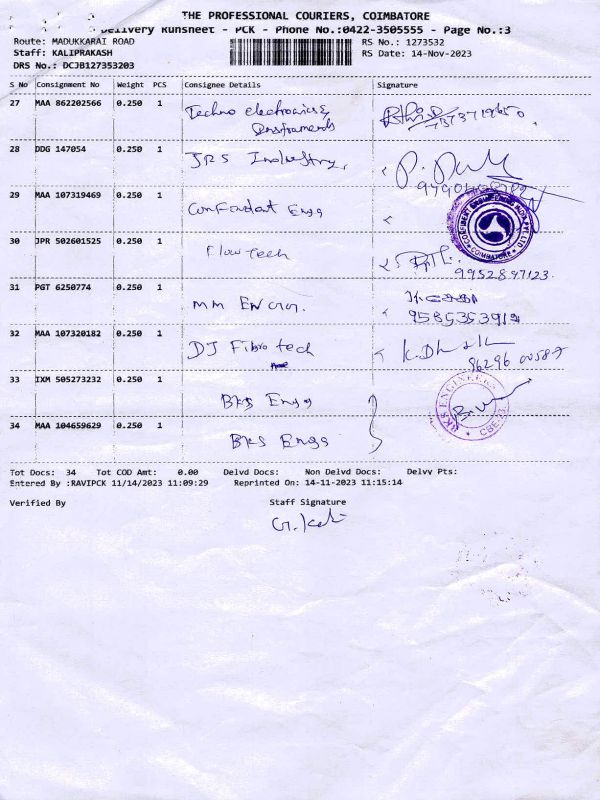 THE PROFESSIONAL COURIERS, COIMBATORE
Delivery Runsheet - PCK - Phone No.:0422-3505555 - Page No.:3
Route: MADUKKARAI ROAD RS No.: 1273532
Staff: KALIPRAKASH RS Date: 14-Nov-2023
DRS No.: DCJB127353203
S No Consignment No Weight PCS Consignee Details Signature
27 MAA 862202566 0.250 1 Techno electronics &
Instruments
28 DDG 147054 0.250 1 JRS Industry,
29 MAA 107319469 0.250 1 Confident Engg
CONFIDENT ENGINEERING INDIA PVT LTD
COIMBATORE
30 JPR 502601525 0.250 1 Flowtech
9952897123.
31 PGT 6250774 0.250 1 MM ENGG.
9585353912
32 MAA 107320182 0.250 1 DJ Fibro tech
33 IXM 505273232 0.250 1 BKS Engg
BKS ENGINEERS
34 MAA 104659629 0.250 1 BKS Engg
Tot Docs: 34 Tot COD Amt: 0.00 Delvd Docs: Non Delvd Docs: Delvy Pts:
Entered By :RAVIPCK 11/14/2023 11:09:29 Reprinted On: 14-11-2023 11:15:14
Verified By Staff Signature